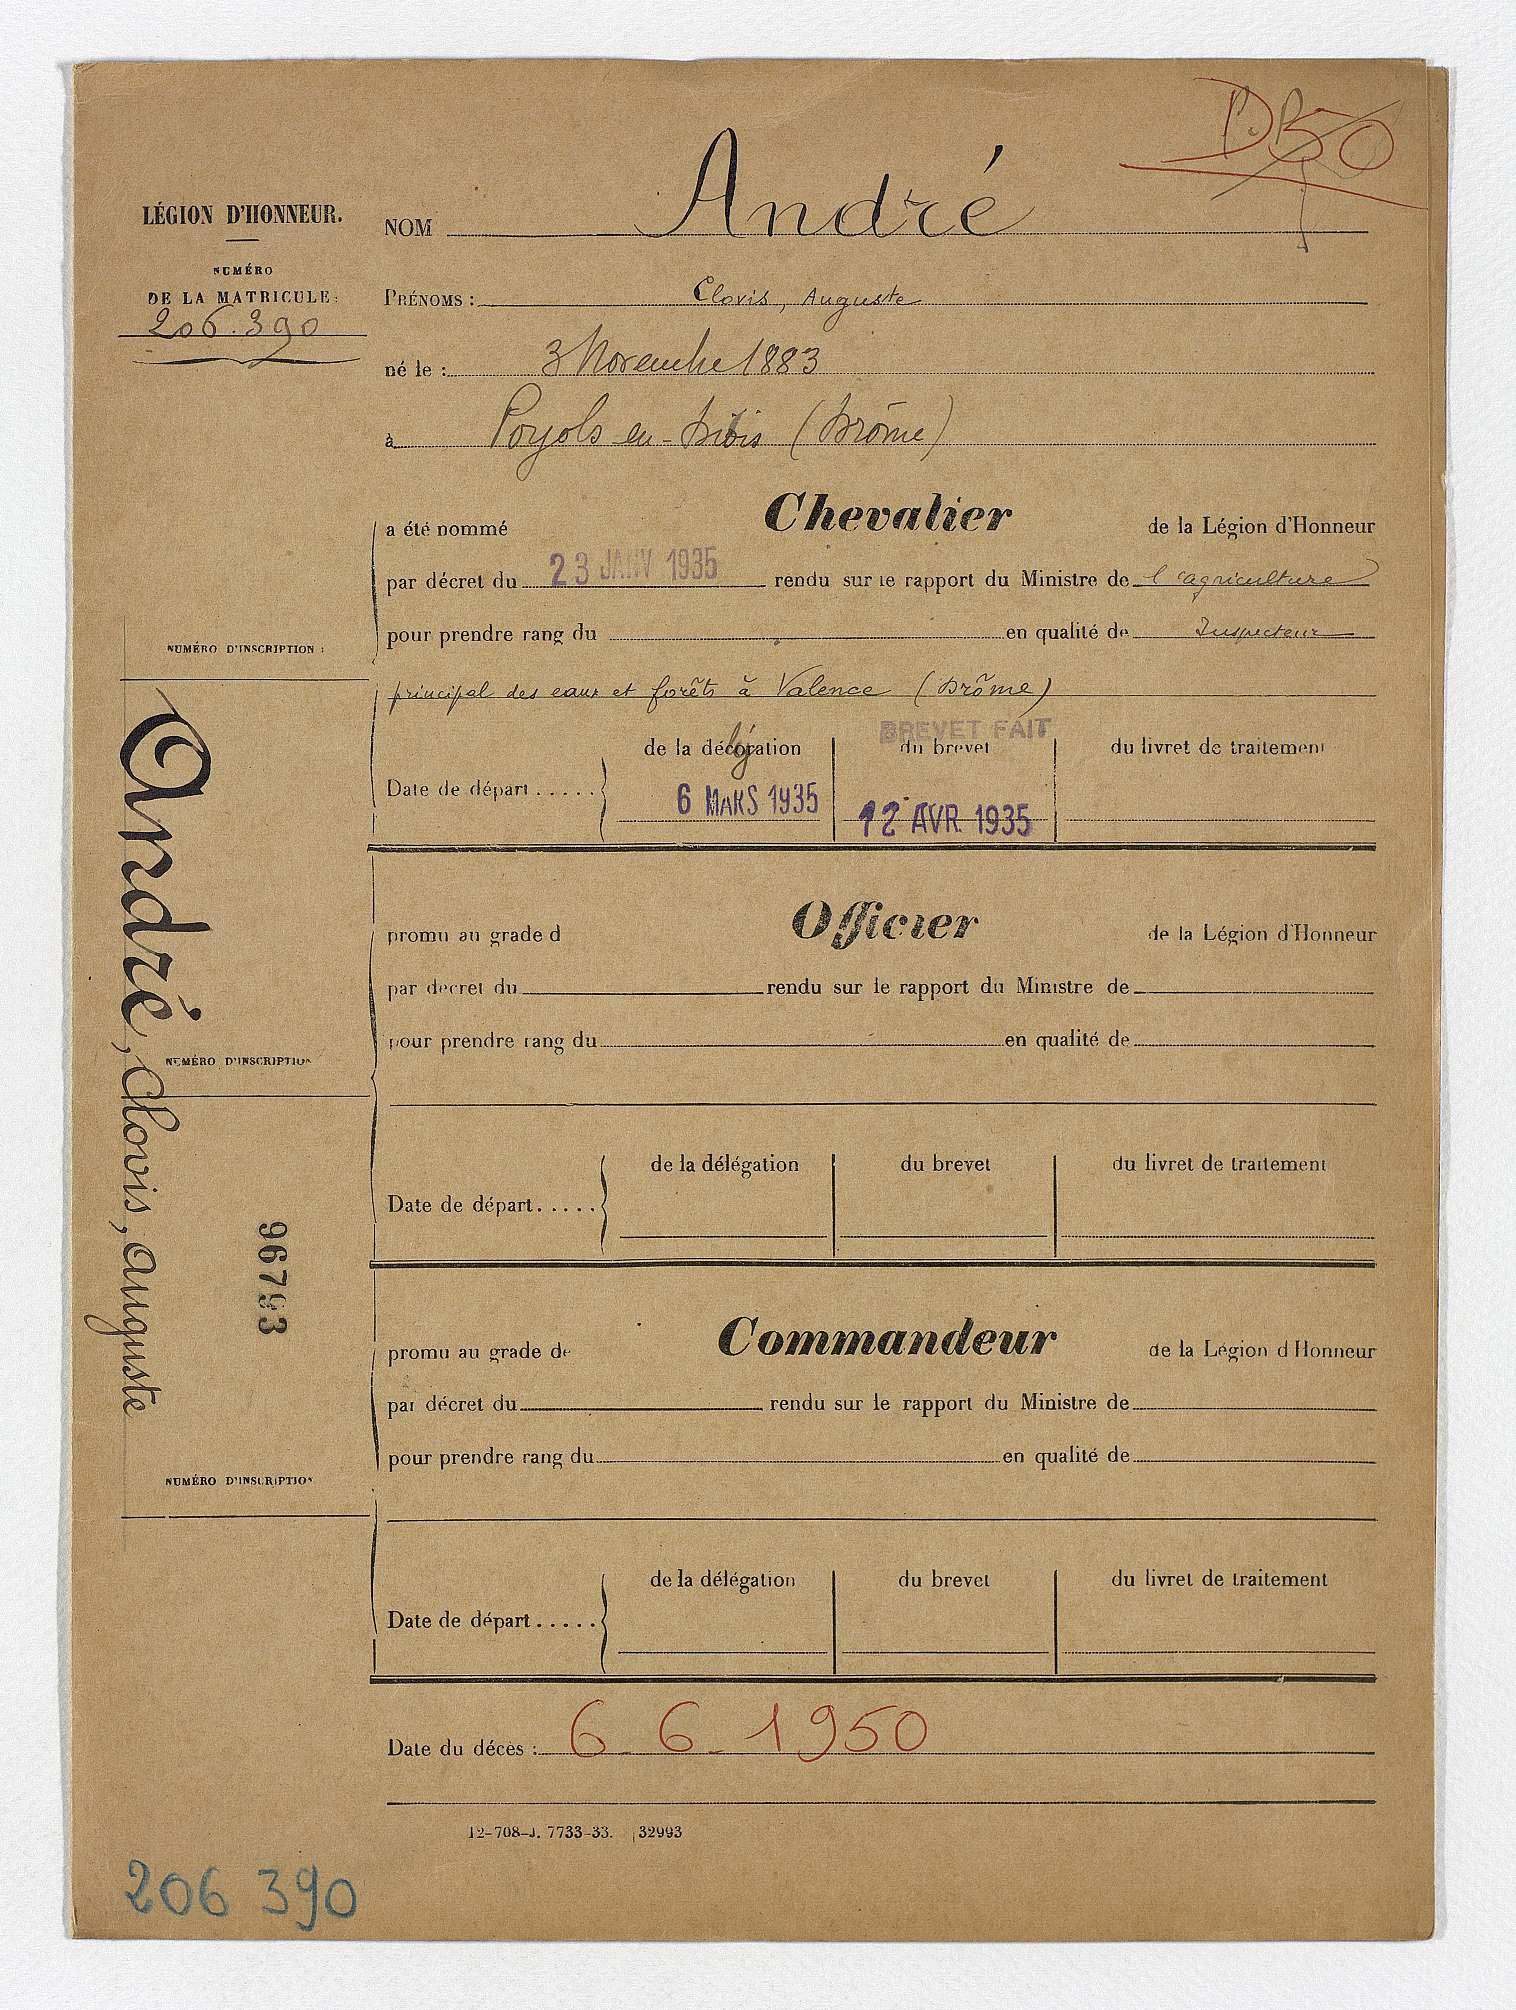 D50
LÉGION D'HONNEUR.
NUMÉRO
DE LA MATRICULE:
206.390
NOM André
PRÉNOMS : Clovis, Auguste
né le : 3 Novembre 1883
à Poyols en- (Drôme)
a été nommé Chevalier de la Légion d'Honneur
par décret du 23 JANV 1935 rendu sur le rapport du Ministre de l'agriculture
pour prendre rang du en qualité de Inspecteur
NUMÉRO D'INSCRIPTION :
principal des eaux et forêts à Valence (Drôme)
BREVET FAIT
de la décoration du brevet du livret de traitement
Date de départ .....
6 MARS 1935 12 AVR. 1935
André, Clovis, Auguste
promu au grade d Officier de la Légion d'Honneur
par décret du rendu sur le rapport du Ministre de
pour prendre rang du en qualité de
NUMÉRO D'INSCRIPTION
de la délégation du brevet du livret de traitement
Date de départ .....
96793
promu au grade de Commandeur de la Légion d'Honneur
par décret du rendu sur le rapport du Ministre de
pour prendre rang du en qualité de
NUMÉRO D'INSCRIPTION
de la délégation du brevet du livret de traitement
Date de départ .....
Date du décès : 6-6-1950
12-708-J. 7733-33. 32993
206 390